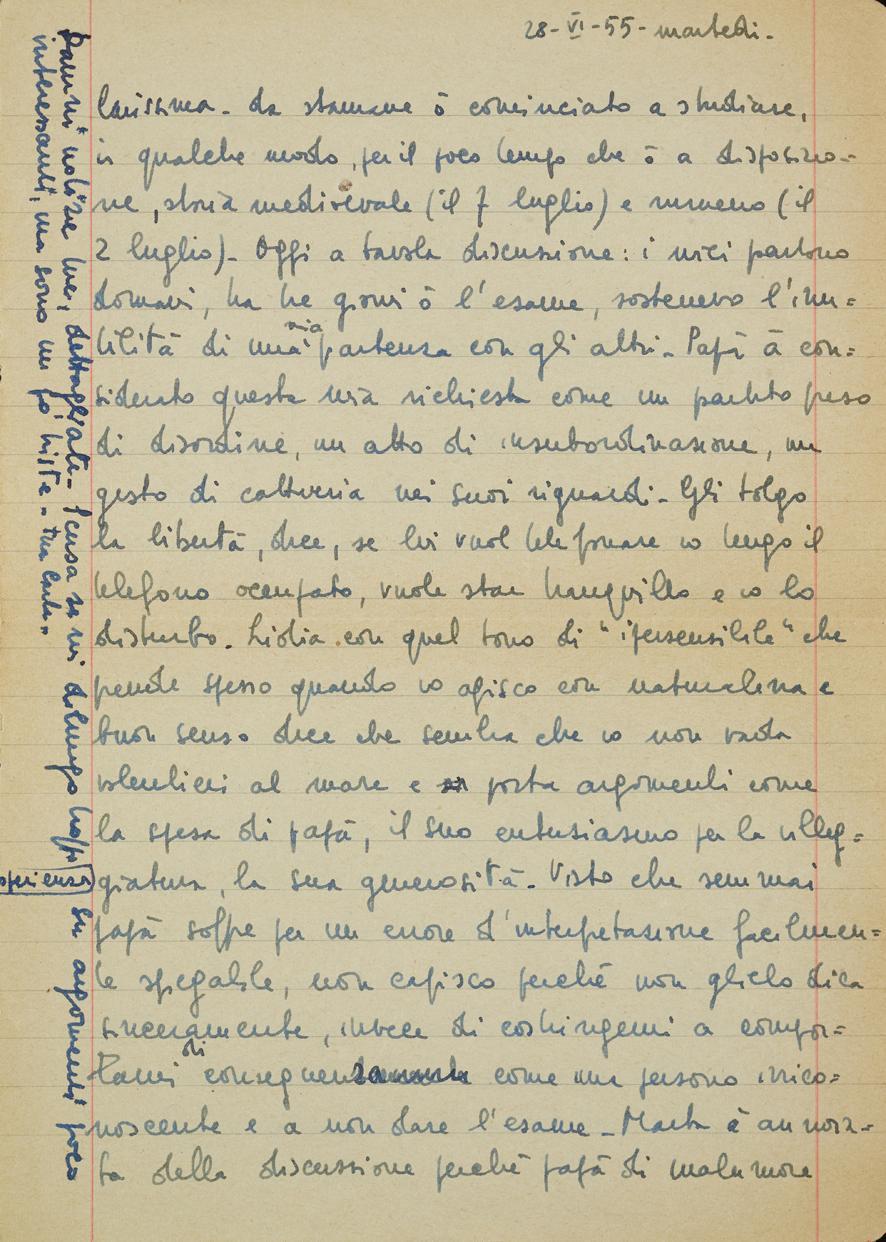 28-VI-55- martedi-
Carissima- da stamane ò cominciato a studiare,
in qualche modo, per il poco tempo che ò a disposizio-
ne, storia medievale (il 7 luglio) e rumeno (il
2 luglio)- Oggi a tavola discussione: i miei partono
domani, tra tre giorni ò l'esame, sostenevo l'inu=
tilità di una mia partenza con gli altri- Papà à con=
siderato questa mia richiesta come un partito preso
di disordine, un atto di insubordinazione, un
gesto di cattiveria nei suoi riguardi- Gli tolgo
la libertà, dice, se lui vuol telefonare io tengo il
telefono occupato, vuole star tranquillo e io lo
disturbo. Lidia con quel tono di "ipersensibile" che
prende spesso quando io agisco con naturalezza e
buon senso dice che sembra che io non vada
volentieri al mare e porta argomenti come
la spesa di papà, il suo entusiasmo per la villeg=
giatura, la sua generosità- Visto che semmai
papà soffre per un errore d'interpretazione facilmen=
te spiegabile, non capisco perché non glielo dica
sinceramente, invece di costringermi a compor=
tarmi di conseguenza come una persona irrico=
noscente e a non dare l'esame- Marta è annoia=
ta della discussione perché papà di malumore
Dammi notizie tue, dettagliate- Scusa se mi dilungo troppo su argomenti poco
interessanti, ma sono un po' triste- tua Carla-